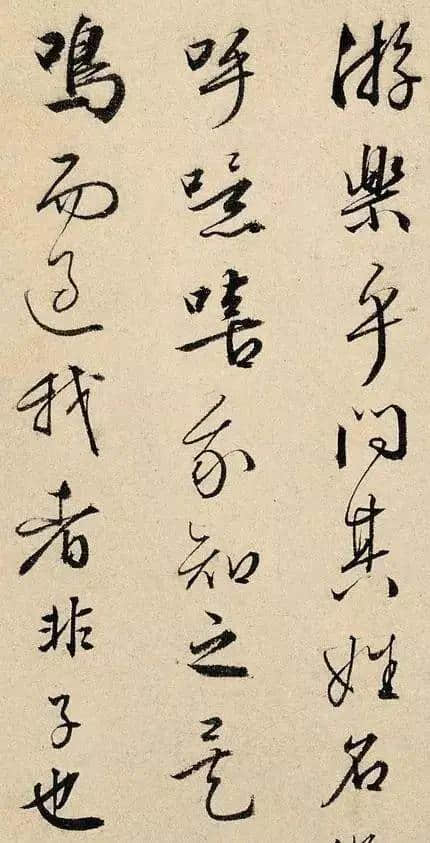 游樂乎問其姓名
呼噫嘻我知之矣
鳴而過我者非子也